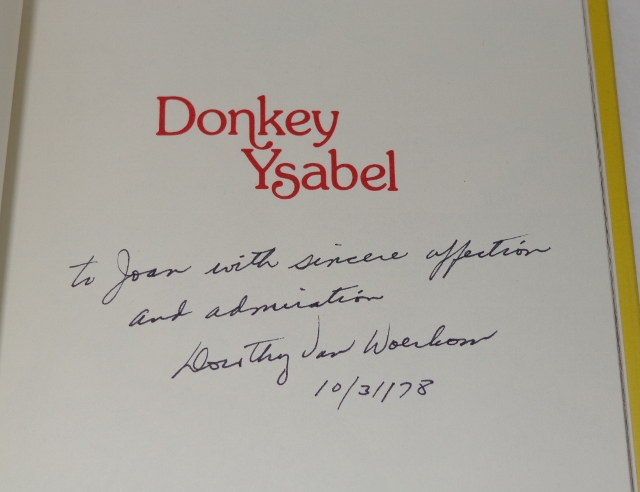 Donkey
Ysabel
to Joan with sincere affection
and admiration
Dorothy Van Woerkom
10/31/78